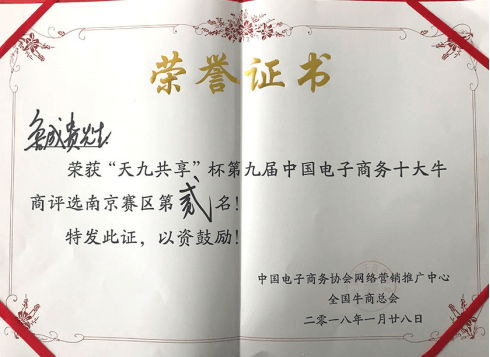 荣誉证书
成贵先生
荣获“天九共享”杯第九届中国电子商务十大牛
商评选南京赛区第贰名!
特发此证，以资鼓励!
中国电子商务协会网络营销推广中心
全国牛商总会
二零一八年一月廿八日